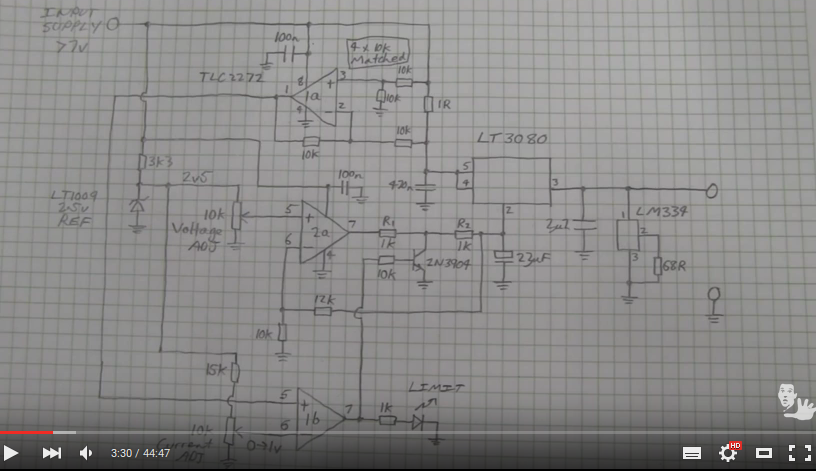 INPUT
SUPPLY
>7V
100n
4 x 10k
Matched
TLC2272
8
3
10k
1
1a
+
10k
1R
4
2
-
10k
10k
LT3080
5
4
3
2
3k3
2v5
100n
470n
LT1009
2.5V
REF
10k
Voltage
ADJ
5
+
2a
7
R1
1k
R2
1k
6
-
4
10k
2N3904
22uF
2u2
LM334
1
2
3
68R
12k
10k
15k
LIMIT
5
+
1b
7
1k
10k
6
-
0→1v
Current
ADJ
3:30 / 44:47
HD